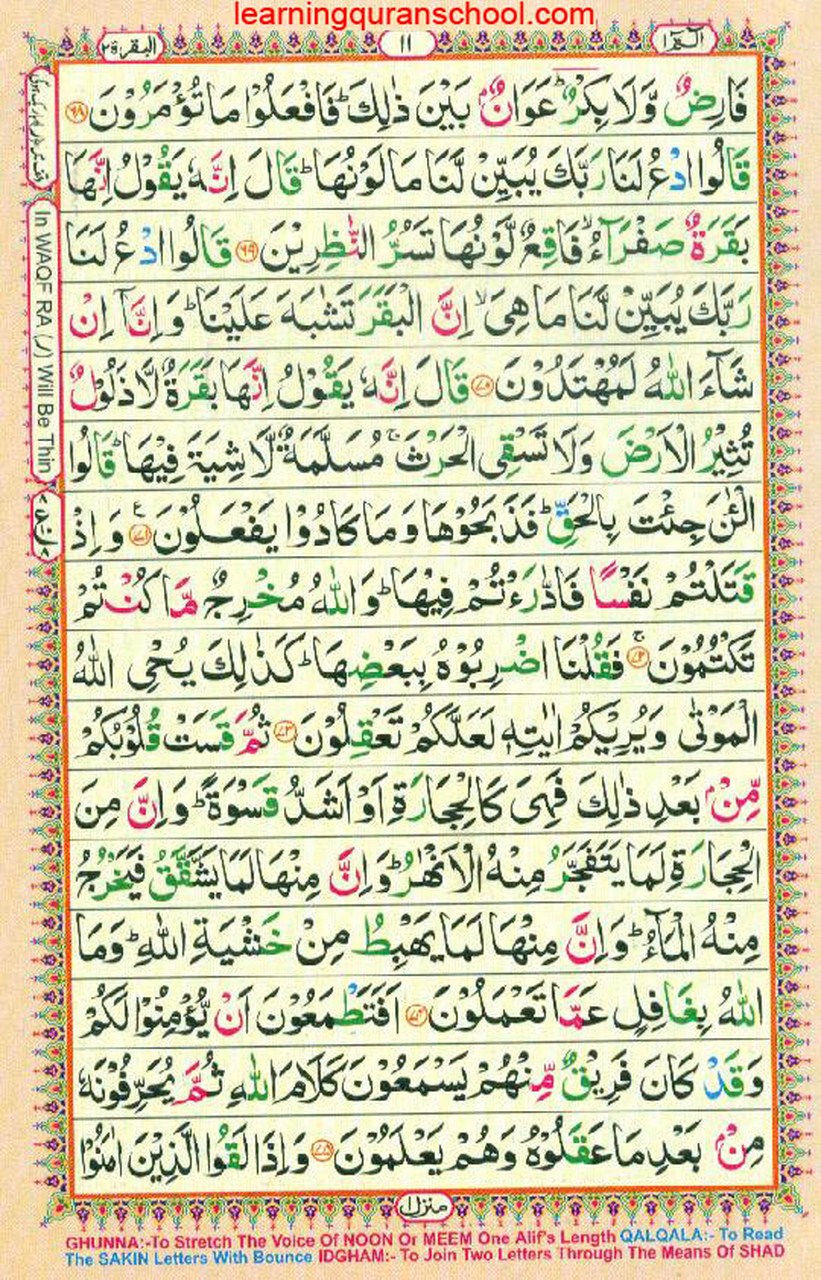 learningquranschool.com
البقرة ٢
١١
الٓمّٓ ١
فَارِضٌ وَّلَا بِكْرٌ ؕ عَوَانٌۢ بَيْنَ ذٰلِكَ ؕ فَافْعَلُوْا مَا تُؤْمَرُوْنَ ﴿۶۸﴾
قَالُوا ادْعُ لَنَا رَبَّكَ يُبَيِّنْ لَّنَا مَا لَوْنُهَا ؕ قَالَ اِنَّهٗ يَقُوْلُ اِنَّهَا
بَقَرَةٌ صَفْرَآءُ ۙ فَاقِعٌ لَّوْنُهَا تَسُرُّ النّٰظِرِيْنَ ﴿۶۹﴾ قَالُوا ادْعُ لَنَا
رَبَّكَ يُبَيِّنْ لَّنَا مَا هِىَ ۙ اِنَّ الْبَقَرَ تَشٰبَهَ عَلَيْنَا ؕ وَاِنَّآ اِنْ
شَآءَ اللّٰهُ لَمُهْتَدُوْنَ ﴿۷۰﴾ قَالَ اِنَّهٗ يَقُوْلُ اِنَّهَا بَقَرَةٌ لَّا ذَلُوْلٌ
تُثِيْرُ الْاَرْضَ وَلَا تَسْقِى الْحَرْثَ ۚ مُسَلَّمَةٌ لَّا شِيَةَ فِيْهَا ؕ قَالُوا
الْـٰٔنَ جِئْتَ بِالْحَقِّ ؕ فَذَبَحُوْهَا وَمَا كَادُوْا يَفْعَلُوْنَ ﴿۷۱﴾ وَاِذْ
قَتَلْتُمْ نَفْسًا فَادّٰرَءْتُمْ فِيْهَا ؕ وَاللّٰهُ مُخْرِجٌ مَّا كُنْتُمْ
تَكْتُمُوْنَ ﴿۷۲﴾ ۚ فَقُلْنَا اضْرِبُوْهُ بِبَعْضِهَا ؕ كَذٰلِكَ يُحْىِ اللّٰهُ
الْمَوْتٰى وَيُرِيْكُمْ اٰيٰتِهٖ لَعَلَّكُمْ تَعْقِلُوْنَ ﴿۷۳﴾ ثُمَّ قَسَتْ قُلُوْبُكُمْ
مِّنْۢ بَعْدِ ذٰلِكَ فَهِىَ كَالْحِجَارَةِ اَوْ اَشَدُّ قَسْوَةً ؕ وَاِنَّ مِنَ
الْحِجَارَةِ لَمَا يَتَفَجَّرُ مِنْهُ الْاَنْهٰرُ ؕ وَاِنَّ مِنْهَا لَمَا يَشَّقَّقُ فَيَخْرُجُ
مِنْهُ الْمَآءُ ؕ وَاِنَّ مِنْهَا لَمَا يَهْبِطُ مِنْ خَشْيَةِ اللّٰهِ ؕ وَمَا
اللّٰهُ بِغَافِلٍ عَمَّا تَعْمَلُوْنَ ﴿۷۴﴾ اَفَتَطْمَعُوْنَ اَنْ يُّؤْمِنُوْا لَكُمْ
وَقَدْ كَانَ فَرِيْقٌ مِّنْهُمْ يَسْمَعُوْنَ كَلَامَ اللّٰهِ ثُمَّ يُحَرِّفُوْنَهٗ
مِنْۢ بَعْدِ مَا عَقَلُوْهُ وَهُمْ يَعْلَمُوْنَ ﴿۷۵﴾ وَاِذَا لَقُوا الَّذِيْنَ اٰمَنُوْا
In WAQF RA (ر) Will Be Thin
منزل ١
GHUNNA:-To Stretch The Voice Of NOON Or MEEM One Alif's Length QALQALA:- To Read
The SAKIN Letters With Bounce IDGHAM:- To Join Two Letters Through The Means Of SHAD